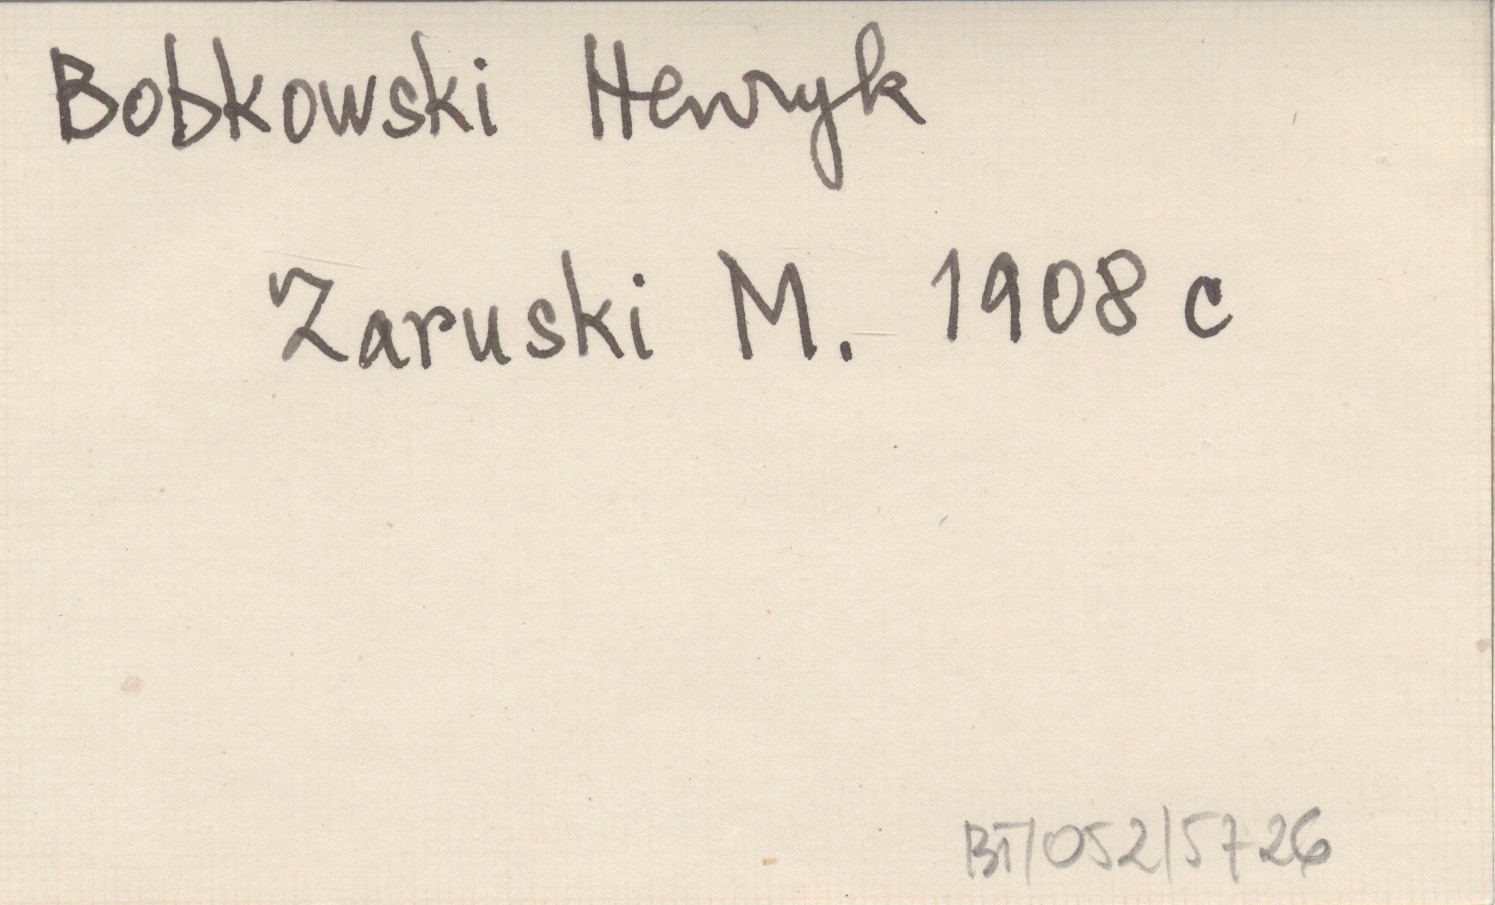 Bobkowski Henryk
Zaruski M. 1908 c
BT/052/5726